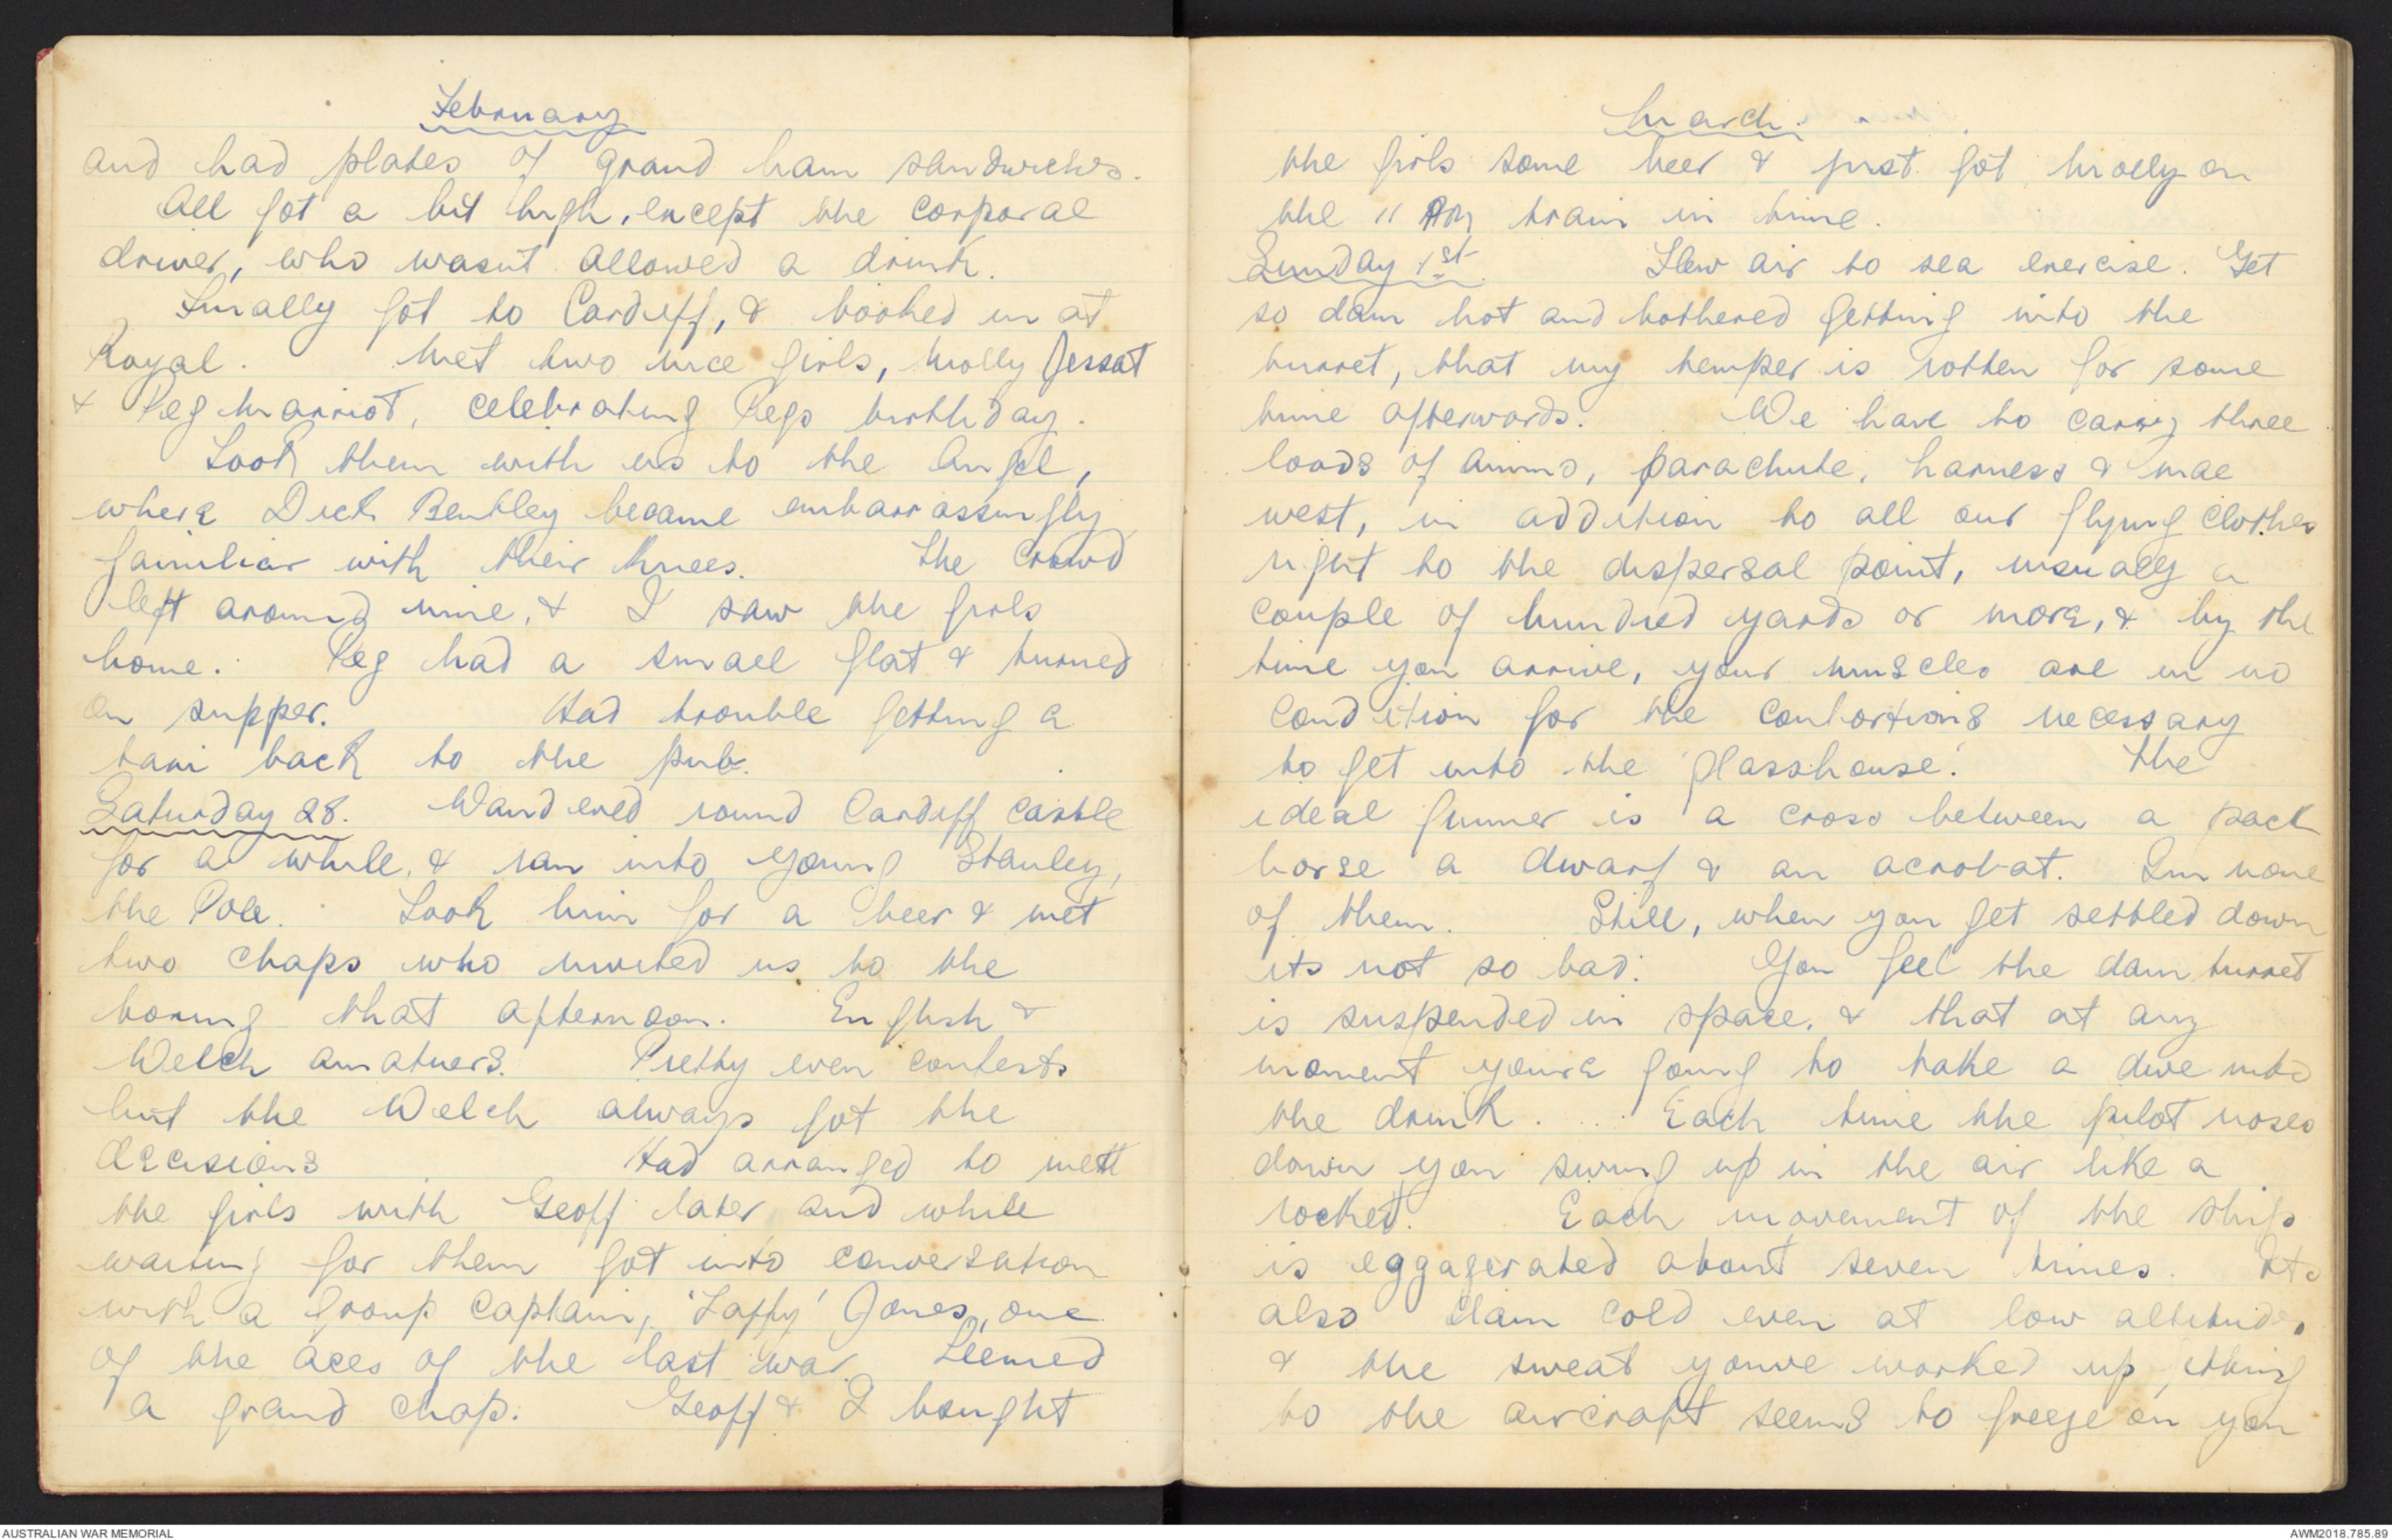 February
and had plates of grand ham sandwiches.
All got a bit high, except the corporal
driver, who wasnt allowed a drink.
Finally got to Cardiff, & booked in at
Royal. Met two nice girls, Molly Jessat
& Peg Marriot, celebrating Pegs birthday.
Took them with us to the Angel,
where Dick Bentley became embarrassingly
familiar with their knees. The crowd
left around nine, & I saw the girls
home. Peg had a small flat & turned
on supper. Had trouble getting a
taxi back to the pub.
Saturday 28. Wandered round Cardiff castle
for a while, & ran into young Stanley,
the Pole. Took him for a beer & met
two chaps who invited us to the
boxing that afternoon. English &
Welch amatuers. Pretty even contests
but the Welch always got the
decisions Had arranged to mett
the girls with Geoff later and while
waiting for them got into conversation
with a group captain, 'Taffy' Jones, one
of the aces of the last war. Seemed
a grand chap. Geoff & I bought
March.
the girls some beer & just got Molly on
the 11 PM train in time.
Sunday 1st Flew air to sea exercise. Get
so dam hot and bothered getting into the
turret, that my temper is rotten for some
time afterwards. We have to carry three
loads of ammo, parachute, harness & mae
west, in addition to all our flying clothes
right to the dispersal point, usually a
couple of hundred yards or more, & by the
time you arrive, your muscles are in no
condition for the contortions necessary
to get into the 'glasshouse.' The
ideal gunner is a cross between a pack
horse a dwarf & an acrobat. Im none
of them. Still, when you get settled down
its not so bad. You feel the dam turret
is suspended in space, & that at any
moment youre going to take a dive into
the drink. Each time the pilot noses
down you swing up in the air like a
rocket. Each movement of the ship
is eggagerated about seven times. Its
also dam cold even at low altitude,
& the sweat youve worked up getting
to the aircraft seems to freeze on you
AUSTRALIAN WAR MEMORIAL
AWM2018.785.89